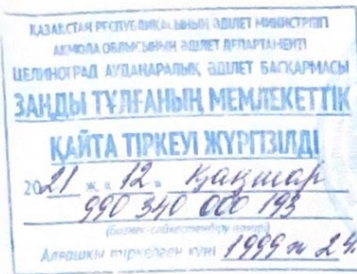 ҚАЗАҚСТАН РЕСПУБЛИКАСЫНЫҢ ӘДІЛЕТ МИНИСТРЛІГІ
АҚМОЛА ОБЛЫСЫНЫҢ ӘДІЛЕТ ДЕПАРТАМЕНТІ
ЦЕЛИНОГРАД АУДАНАРАЛЫҚ ӘДІЛЕТ БАСҚАРМАСЫ
ЗАҢДЫ ТҰЛҒАНЫҢ МЕМЛЕКЕТТІК
ҚАЙТА ТІРКЕУІ ЖҮРГІЗІЛДІ
2021 ж. «12»
990 340 000 193
(бизнес-сәйкестендіру нөмірі)
Алғашқы тіркелген күні 1999 ж 24